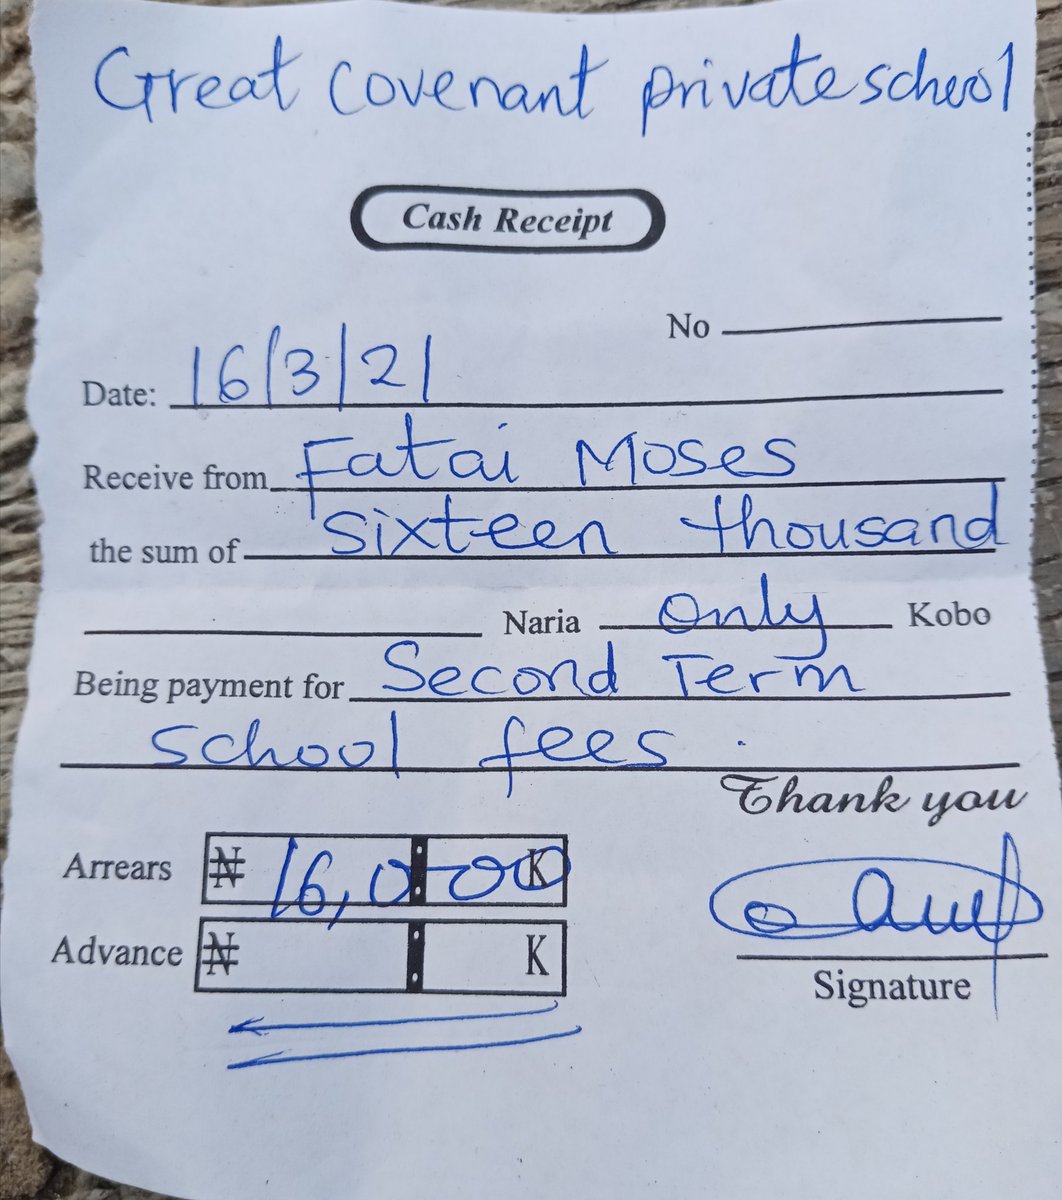 Great covenant private school
Cash Receipt
No
Date: 16/3/21
Receive from Fatai Moses
the sum of Sixteen thousand
Naria only Kobo
Being payment for Second Term
school fees.
Thank you
Arrears ₦ 16,000 K
Advance ₦ K
Signature